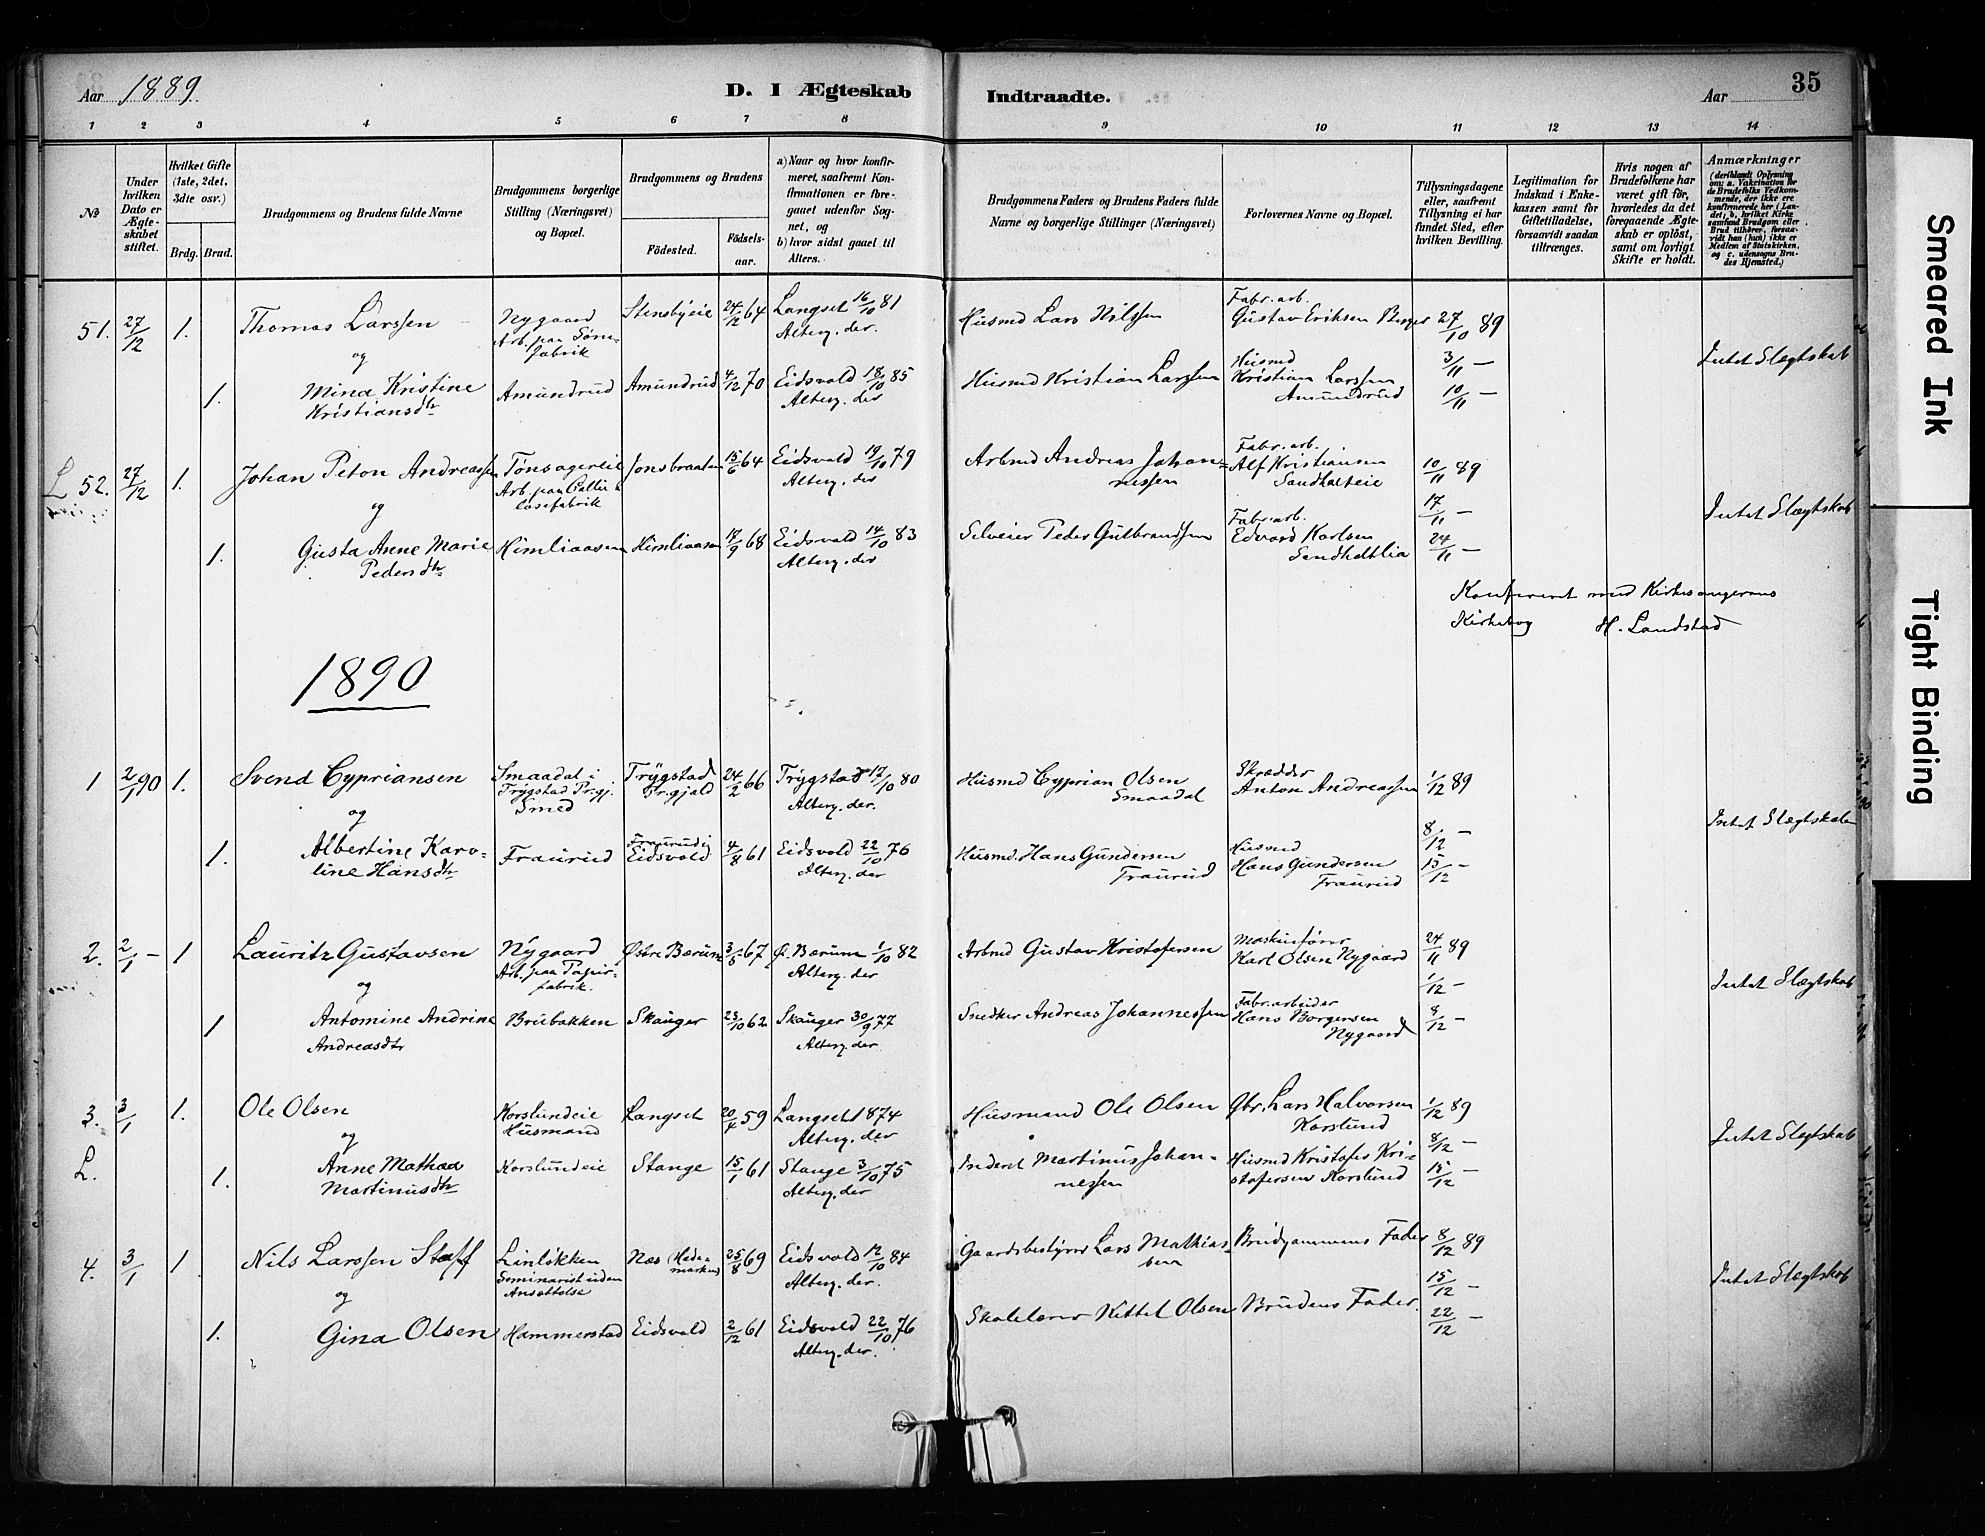 Aar 1889
D. I Ægteskab
Indtraadte.
Aar
35
1 2 3 4 5 6 7 8 9 10 11 12 13 14
№
Under hvilken Dato er Ægteskabet stiftet.
Hvilket Gifte (1ste, 2det, 3die osv.)
Brdg. Brud.
Brudgommens og Brudens fulde Navne
Brudgommens borgerlige Stilling (Næringsvei) og Bopæl.
Brudgommens og Brudens
Födested.
Födsels-aar.
a) Naar og hvor konfirmeret, saafremt Konfirmationen er foregaaet udenfor Sognet, og
b) hvor sidst gaaet til Alters.
Brudgommens Faders og Brudens Faders fulde Navne og borgerlige Stillinger (Næringsvei)
Forlovernes Navne og Bopæl.
Tillysningsdagene eller, saafremt Tillysning ei har fundet Sted, efter hvilken Bevilling.
Legitimation for Indskud i Enkekassen samt for Giftetilladelse, forsaavidt saadan tiltrænges.
Hvis nogen af Brudefolkene har været gift før, hvorledes da det foregaaende Ægteskab er opløst, samt om lovligt Skifte er holdt.
Anmærkninger (deriblandt Oplysning om: a. Vakcination for de Brudefolks Vedkommende, der ikke ere konfirmerede her i Landet; b. hvilket Kirkesamfund Brudgom eller Brud tilhører, forsaavidt han (hun) ikke er Medlem af Statskirken, og c. udensogns Brudes Hjemsted.)
51. 27/12 1. Thomas Larssen Nygaard Stensbyeie 24/12 64 Langset 16/10 81 Husmd Lars Nilssen Fabr. arb. Gustav Eriksen Berger 27/10 89
Arb. paa fabrik Alterg. der.
og 3/11 — Intet Slægtskab
1. Mina Kristine Amundrud Amundrud 4/12 70 Eidsvold 18/10 85 Husmd Kristian Larssen Husmd Kristian Larssen
Kristiansdtr Alterg. der Amundrud 10/11 —
L 52. 27/12 1. Johan Peton Andreassen Jonsbraaten 15/6 64 Eidsvold 19/10 79 Arbmd Andreas Johannessen Fabr. arb. Alf Kristiansen 10/11 89
Alterg. der
og 17/11 — Intet Slægtskab
1. Gusta Anne Marie Himliaasen Himliaasen 17/9 68 Eidsvold 14/10 83 Selveier Peder Gulbrandsen Fabr. arb. Edvard Karlsen
Pedersdtr Alterg. der 24/11 —
Konfereret med Kirkesangerens
Kirkebog H. Landstad
1890
1 2/1 90 1. Svend Cypriansen Smaadal i Trygstad 24/2 66 Trygstad 17/10 80 Husmd Cyprian Olsen Skrædder Anton Andreassen 1/12 89
Trygstad Pr.gj. Smed Pr.gjæld Alterg. der. Smaadal
og 8/12 — Intet Slægtskab
1. Albertine Karoline Hansdtr Fraurud Fraurud i Eidsvold 4/8 61 Eidsvold 22/10 76 Husmd. Hans Gundersen Husmd Hans Gundersen
Alterg. der Fraurud Fraurud 15/12 —
2. 2/1 — 1 Lauritz Gustavsen Nygaard Østre Bærum 3/5 67 Ø. Bærum 1/10 82 Arbmd Gustav Kristofersen Maskinfører Karl Olsen Nygaard 24/11 89
Arb. paa Papirfabrik. Alterg. der
og 1/12 — Intet Slægtskab
1 Antomine Andrine Brubakken Skauger 23/10 62 Skauger 30/9 77 Snedker Andreas Johannessen Fabr. arbeider Hans Borgersen
Andreasdtr Alterg. der Nygaard 8/12 —
3. 3/1 1. Ole Olsen Korslundeie Langset 20/4 59 Langset 1874 Husmand Ole Olsen Gbr. Lars Halvorsen 1/12 89
Husmand Alterg. der Korslund
L. og 8/12 — Intet Slægtskab
1. Anne Mathea Korslundeie Stange 15/1 61 Stange 3/10 75 Inderst Martinus Johannessen Husmd Kristofer Kristofersen Korslund
Martinusdtr Alterg. der 15/12 —
4. 3/1 1 Nils Larssen Staff Linløkken Næs (Hedemarken) 25/8 69 Eidsvold 12/10 84 Gaardsbestyrer Lars Mathiassen Brudgommens Fader 8/12 89
Seminarist uden Ansættelse Alterg. der.
og 15/12 — Intet Slægtskab
1. Gina Olsen Hammerstad Eidsvold 2/12 61 Eidsvold 22/10 76 Skolelærer Kittel Olsen Brudens Fader.
Alterg. der. 22/12 —
Smeared Ink
Tight Binding